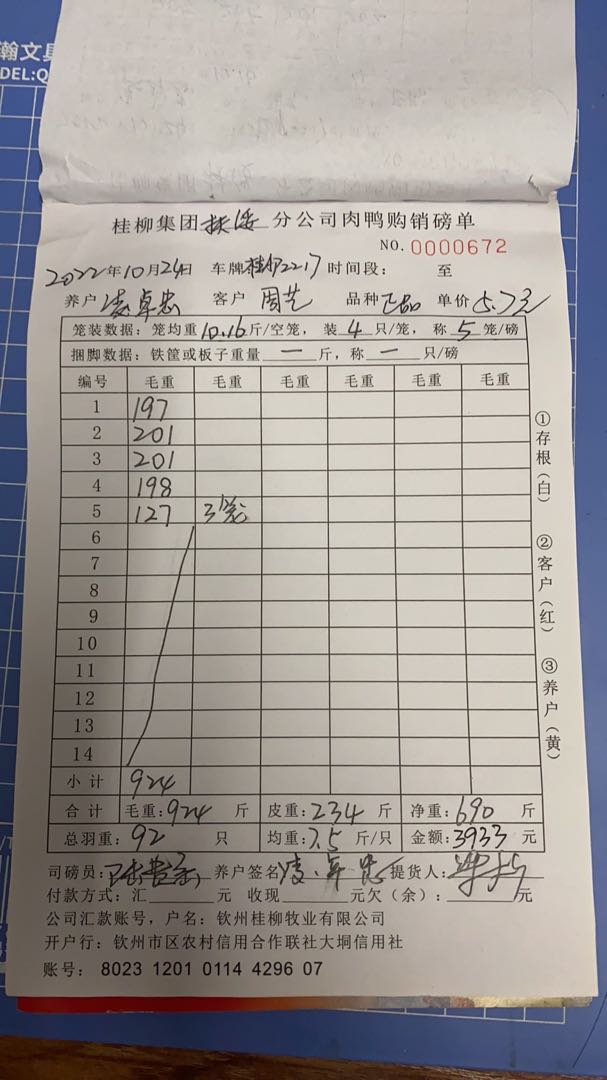 瀚文具
DEL:Q
桂柳集团扶绥分公司肉鸭购销磅单
NO. 0000672
2022年10月24日 车牌桂 2217 时间段： 至
养户 凌卓忠 客户 周艺 品种 正品 单价 5.7元
笼装数据：笼均重10.16斤/空笼， 装 4 只/笼， 称 5 笼/磅
捆脚数据：铁筐或板子重量 一 斤，称 一 只/磅
编号 毛重 毛重 毛重 毛重 毛重 毛重
1 197
2 201
3 201
4 198
5 127 3笼
6
7
8
9
10
11
12
13
14
小计 924
合计 毛重：924 斤 皮重：234 斤 净重：690 斤
总羽重：92 只 均重：7.5 斤/只 金额：3933 元
司磅员： 养户签名 凌卓忠 提货人：
付款方式：汇 元 收现 元欠（余）： 元
公司汇款账号，户名：钦州桂柳牧业有限公司
开户行：钦州市区农村信用合作联社大垌信用社
账号： 8023 1201 0114 4296 07
①存根（白） ②客户（红） ③养户（黄）